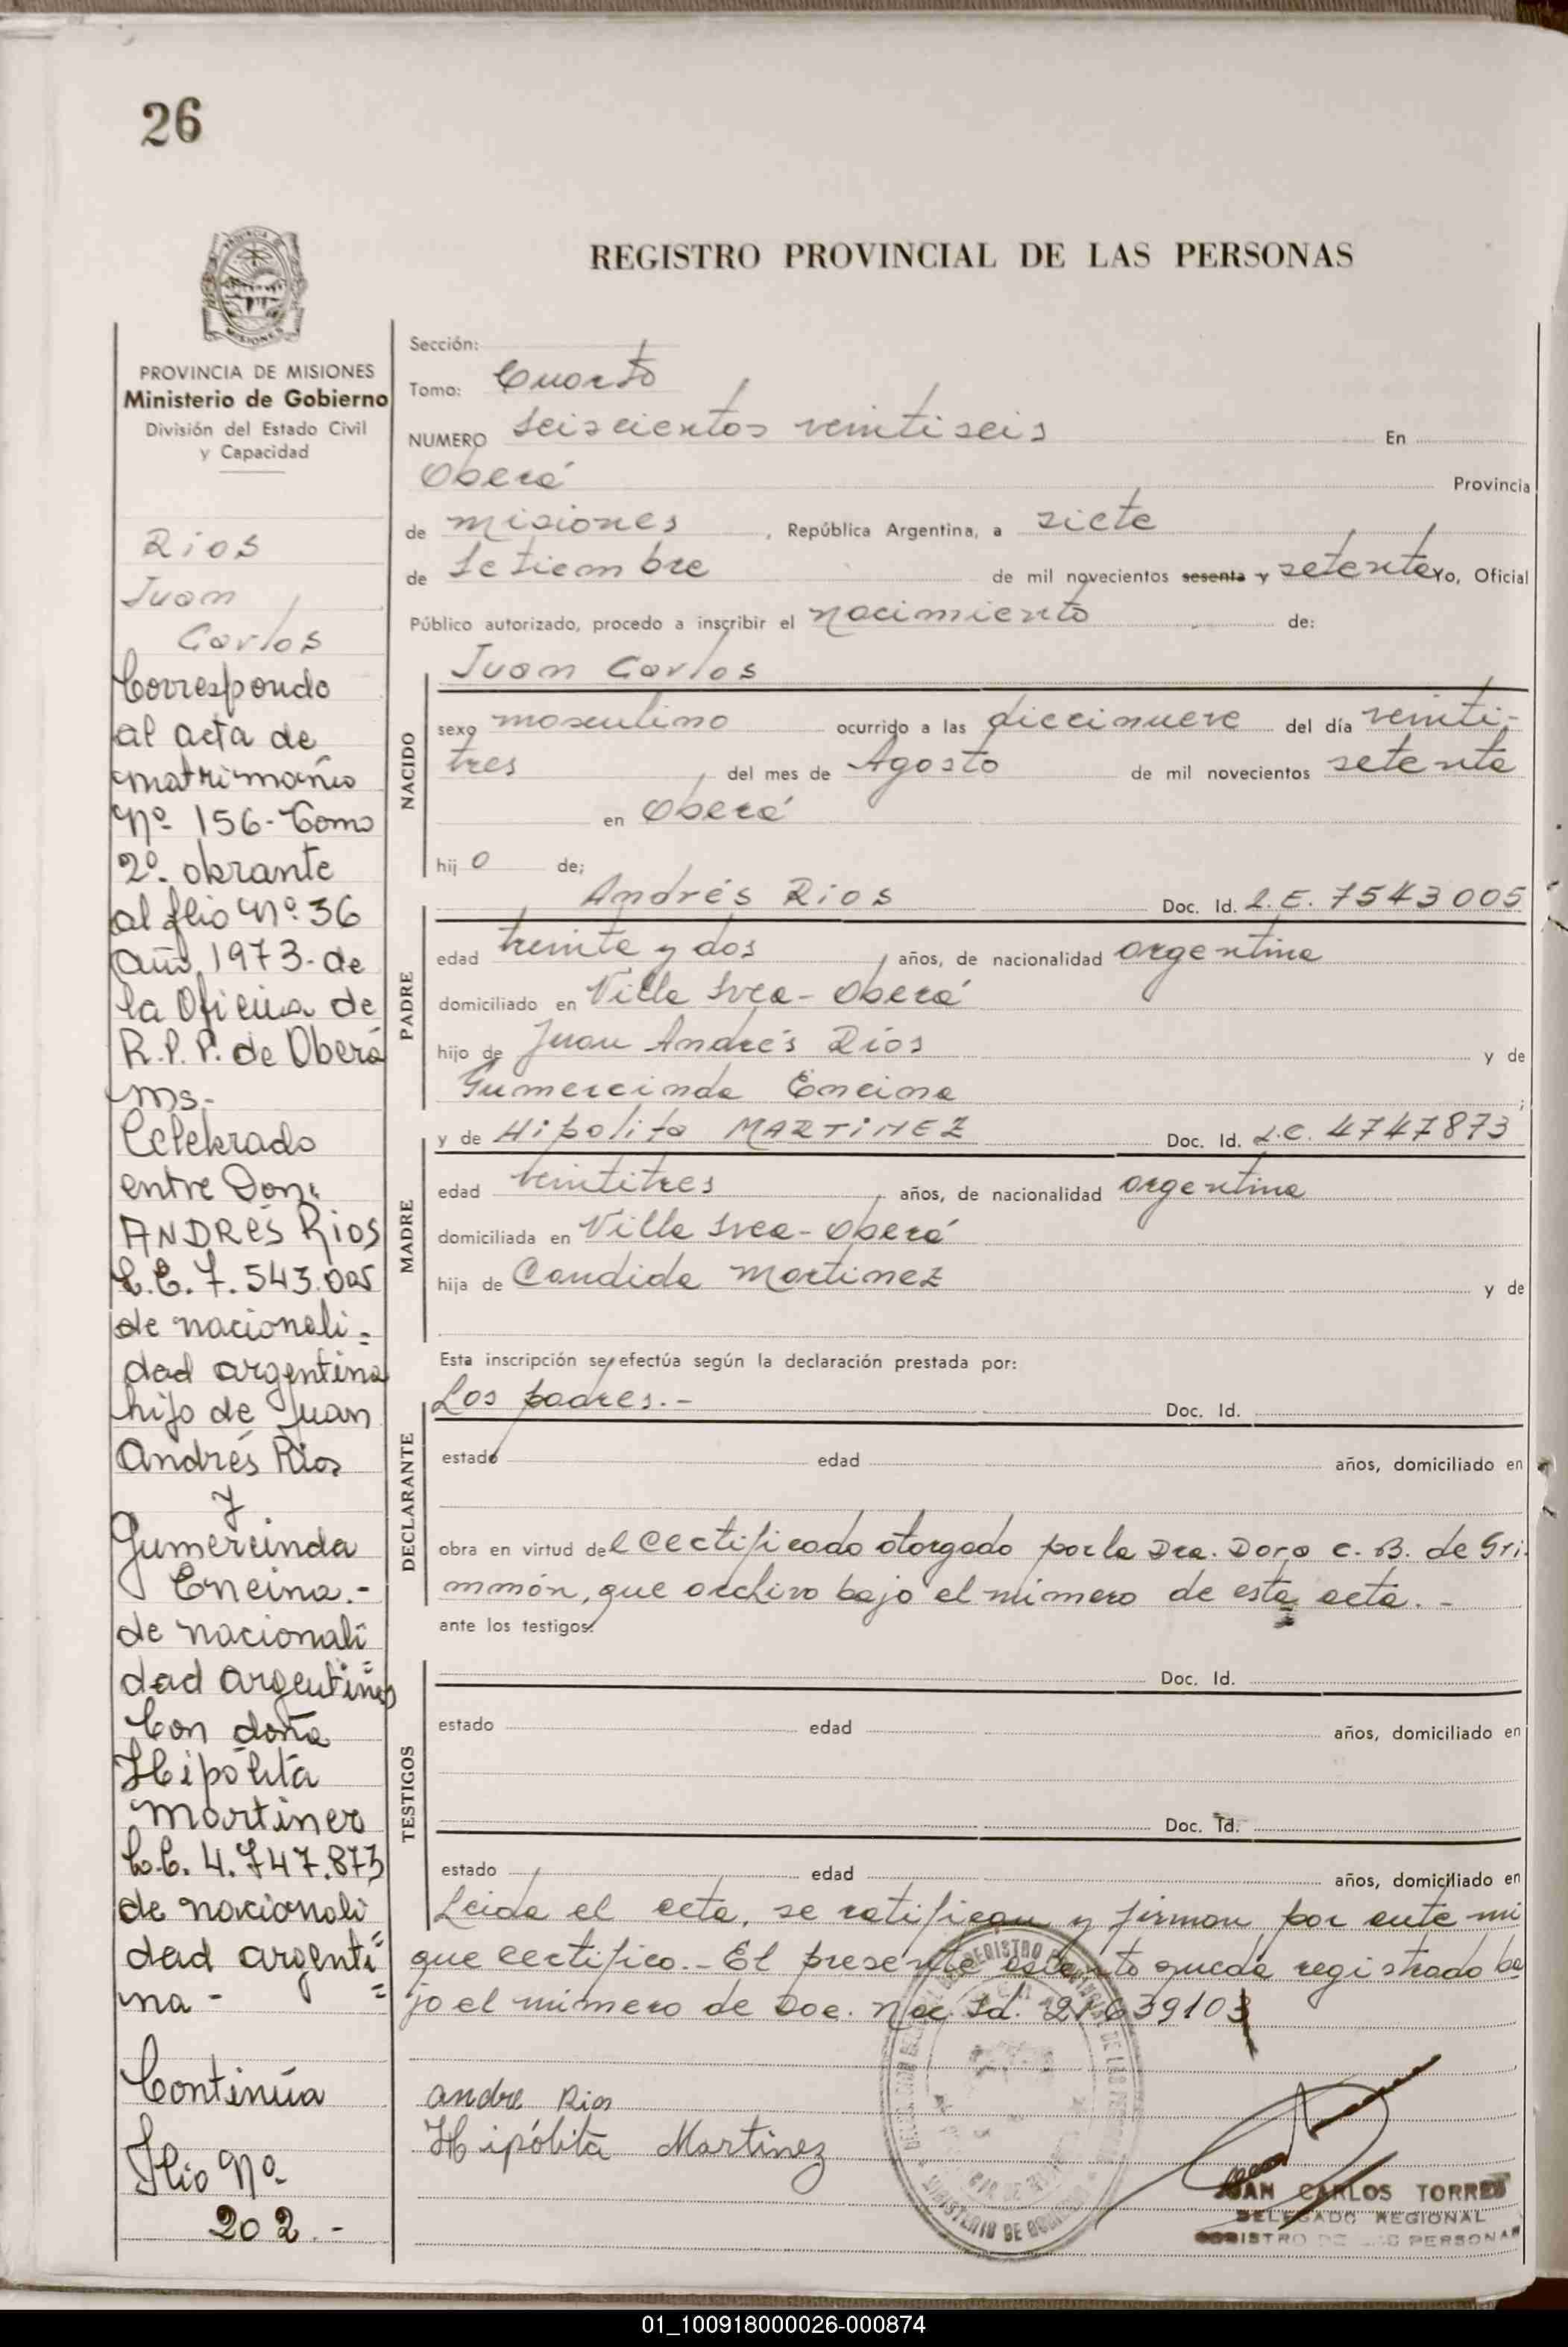 26
REGISTRO PROVINCIAL DE LAS PERSONAS
PROVINCIA DE MISIONES
Ministerio de Gobierno
División del Estado Civil
y Capacidad
Rios
Juan
Carlos
Correspondo
al acta de
matrimonio
Nº 156- Tomo
2º. obrante
al flio Nº 36
Año 1973- de
la Oficina de
R.P.P. de Oberá
Ms.-
Celebrado
entre Don:
ANDRÉS Rios
L.E. 7.543.005
de nacionali=
dad argentina
hijo de Juan
Andrés Rios
y
Gumercinda
Encina.-
de nacionali=
dad argentinos
Con doña
Hipólita
Martinez
L.C. 4.747.873
de nacionali=
dad argenti=
na -
Continúa
Flio Nº
202.-
Sección:
Tomo: Cuarto
NUMERO Seiscientos veintiseis En
Oberá Provincia
de misiones, República Argentina, a siete
de Setiembre de mil novecientos sesenta y setenta Yo, Oficial
Público autorizado, procedo a inscribir el nacimiento de:
NACIDO
Juan Carlos
sexo masculino ocurrido a las diecinueve del día veinti-
tres, del mes de Agosto de mil novecientos setenta
en Oberá
hijo de;
PADRE
Andrés Rios Doc. Id. L.E. 7543005
edad treinta y dos, años, de nacionalidad argentina
domiciliado en Villa Svea- Oberá
hijo de Juan Andrés Rios y de
Gumercinda Encina;
MADRE
y de Hipolita MARTINEZ Doc. Id. L.C. 4747873
edad veintitres, años, de nacionalidad argentina
domiciliada en Villa Svea- Oberá
hija de Candida Martinez y de
Esta inscripción se efectúa según la declaración prestada por:
DECLARANTE
Los padres.- Doc. Id.
estado edad años, domiciliado en
obra en virtud del certificado otorgado por la Dra. Dora C. B. de Gri-
mmón, que archivo bajo el número de esta acta. -
ante los testigos:
TESTIGOS
Doc. Id.
estado edad años, domiciliado en
Doc. Id.
estado edad años, domiciliado en
Leida el acta, se ratifican y firman por ante mi
que certifico.- El presente asiento queda registrado ba
jo el número de Doc. Nac. Id. 21639103
andre Rios
Hipólita Martinez
JUAN CARLOS TORRES
DELEGADO REGIONAL
REGISTRO DE LAS PERSONAS
01_100918000026-000874